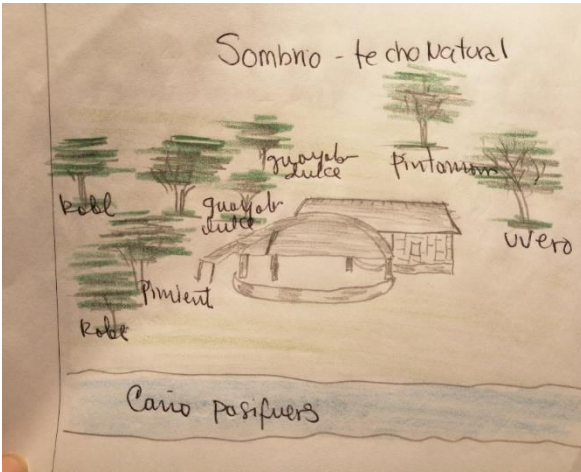 Sombrio - techo Natural
guayab
dulce
Pintamom
kobl
guayab
dulce
uvero
Pimient
Robe
Caño pasifuers